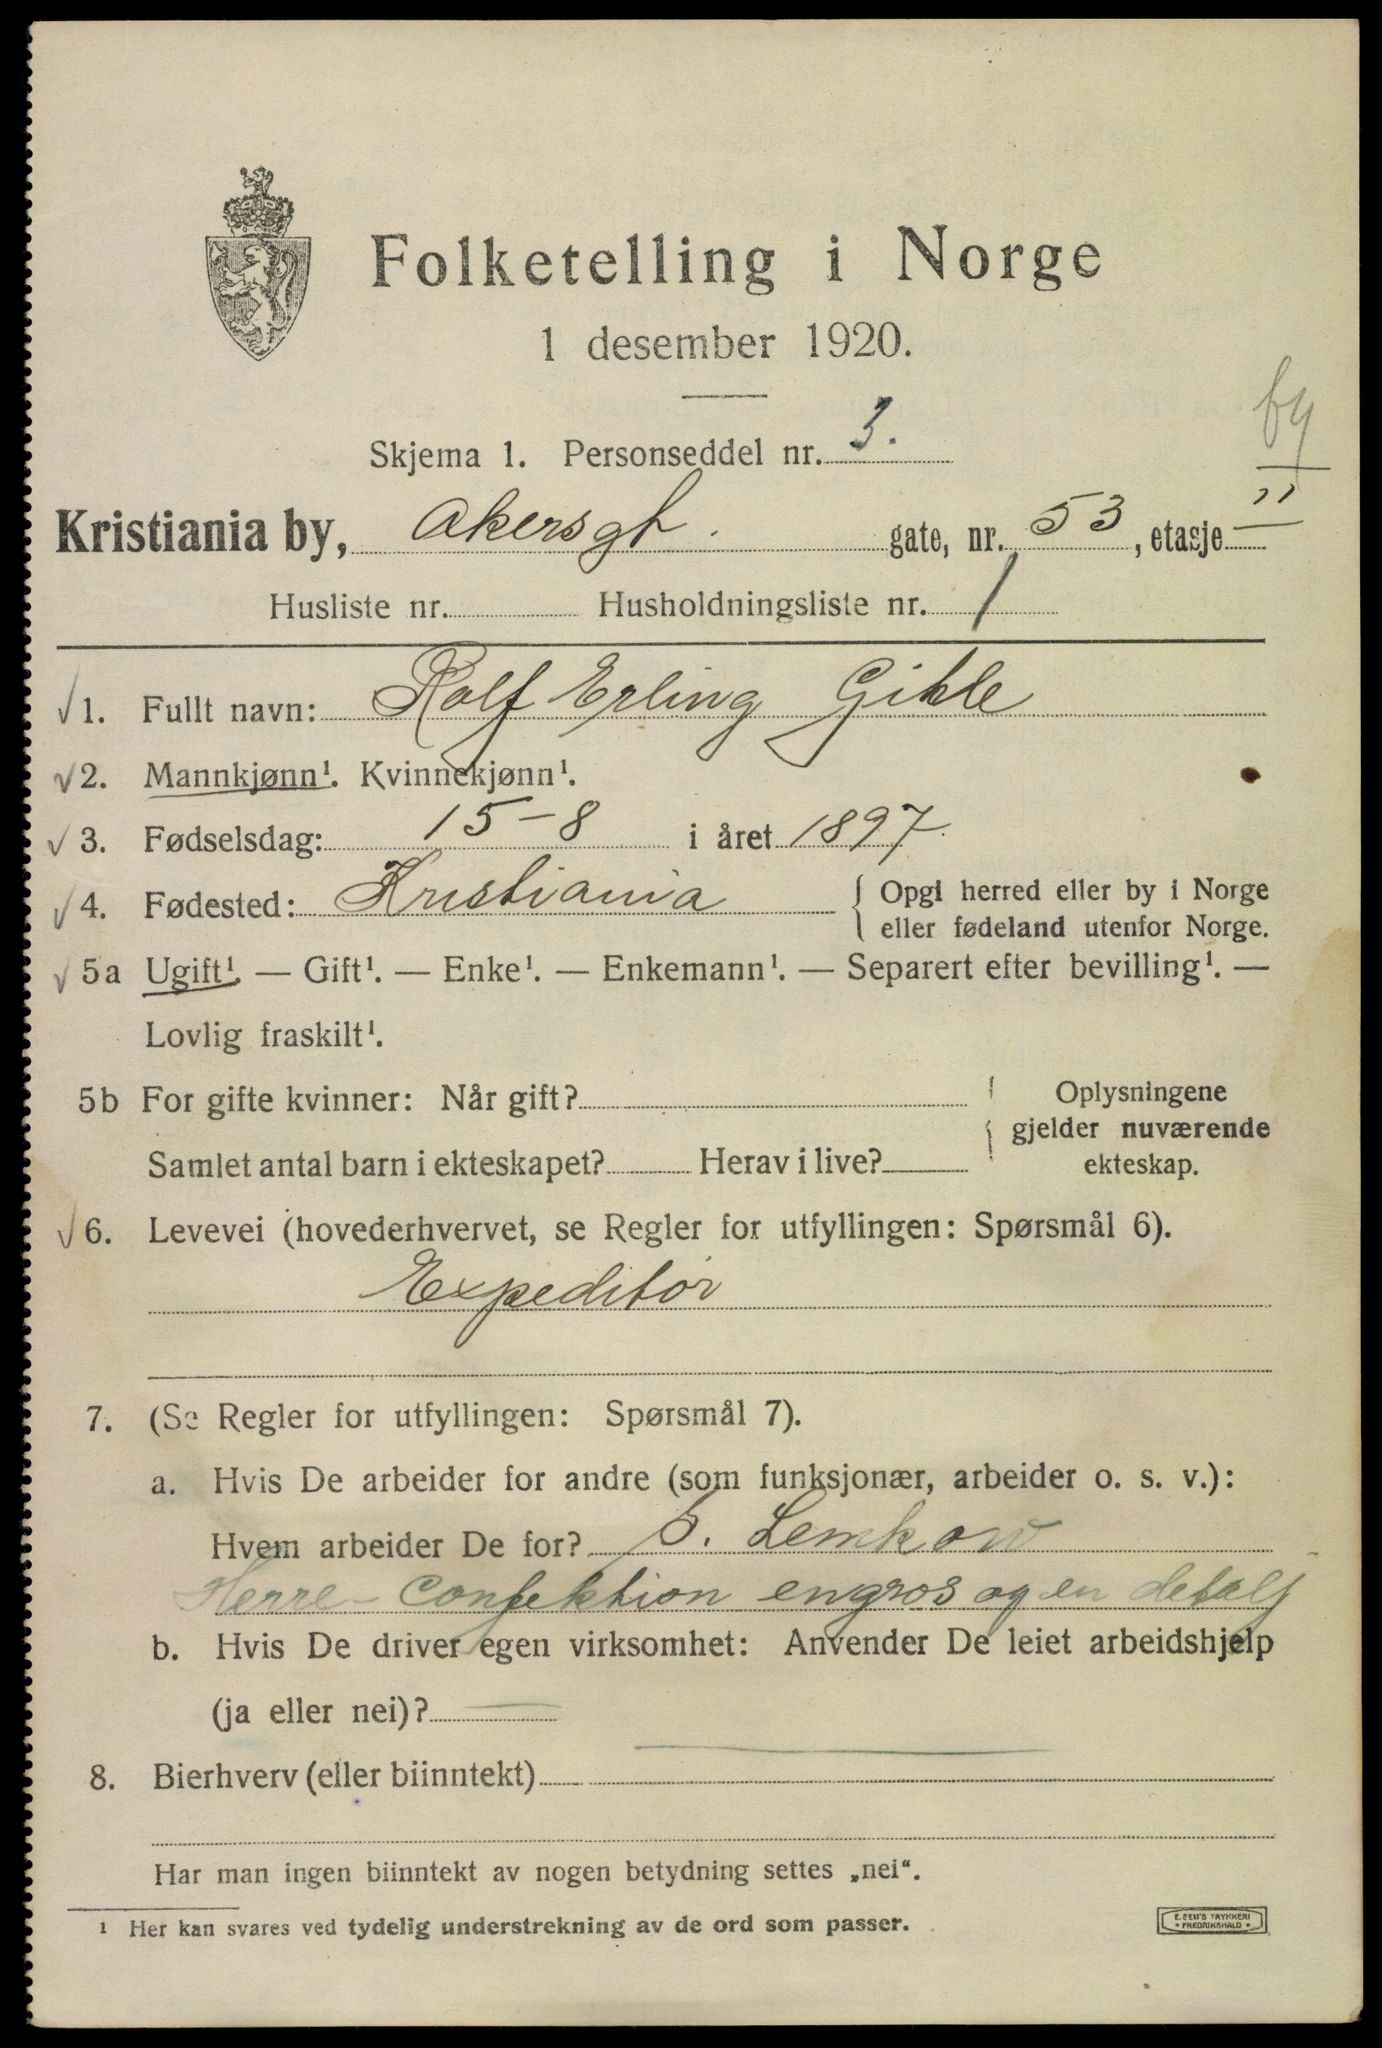 Folketelling i Norge
1 desember 1920.
Skjema 1. Personseddel nr. 3.
Kristiania by, Akersgt. gate, nr. 53, etasje II
Husliste nr. Husholdningsliste nr. 1
√ 1. Fullt navn: Rolf Erling Gihle
√ 2. Mannkjønn¹. Kvinnekjønn¹.
√ 3. Fødselsdag: 15-8 i året 1897.
√ 4. Fødested: Kristiania { Opgi herred eller by i Norge
eller fødeland utenfor Norge.
√ 5a Ugift¹. — Gift¹. — Enke¹. — Enkemann¹. — Separert efter bevilling¹. —
Lovlig fraskilt¹.
5b For gifte kvinner: Når gift? { Oplysningene
gjelder nuværende
Samlet antal barn i ekteskapet? Herav i live? ekteskap.
√ 6. Levevei (hovederhvervet, se Regler for utfyllingen: Spørsmål 6).
Expeditør
7. (Se Regler for utfyllingen: Spørsmål 7).
a. Hvis De arbeider for andre (som funksjonær, arbeider o. s. v.):
Hvem arbeider De for? Lemkow
Herre-Confektion engros og en detalj
b. Hvis De driver egen virksomhet: Anvender De leiet arbeidshjelp
(ja eller nei)? —
8. Bierhverv (eller biinntekt) —
Har man ingen biinntekt av nogen betydning settes „nei“.
¹ Her kan svares ved tydelig understrekning av de ord som passer.
E. SEM'S TRYKKERI
• FREDRIKSHALD •